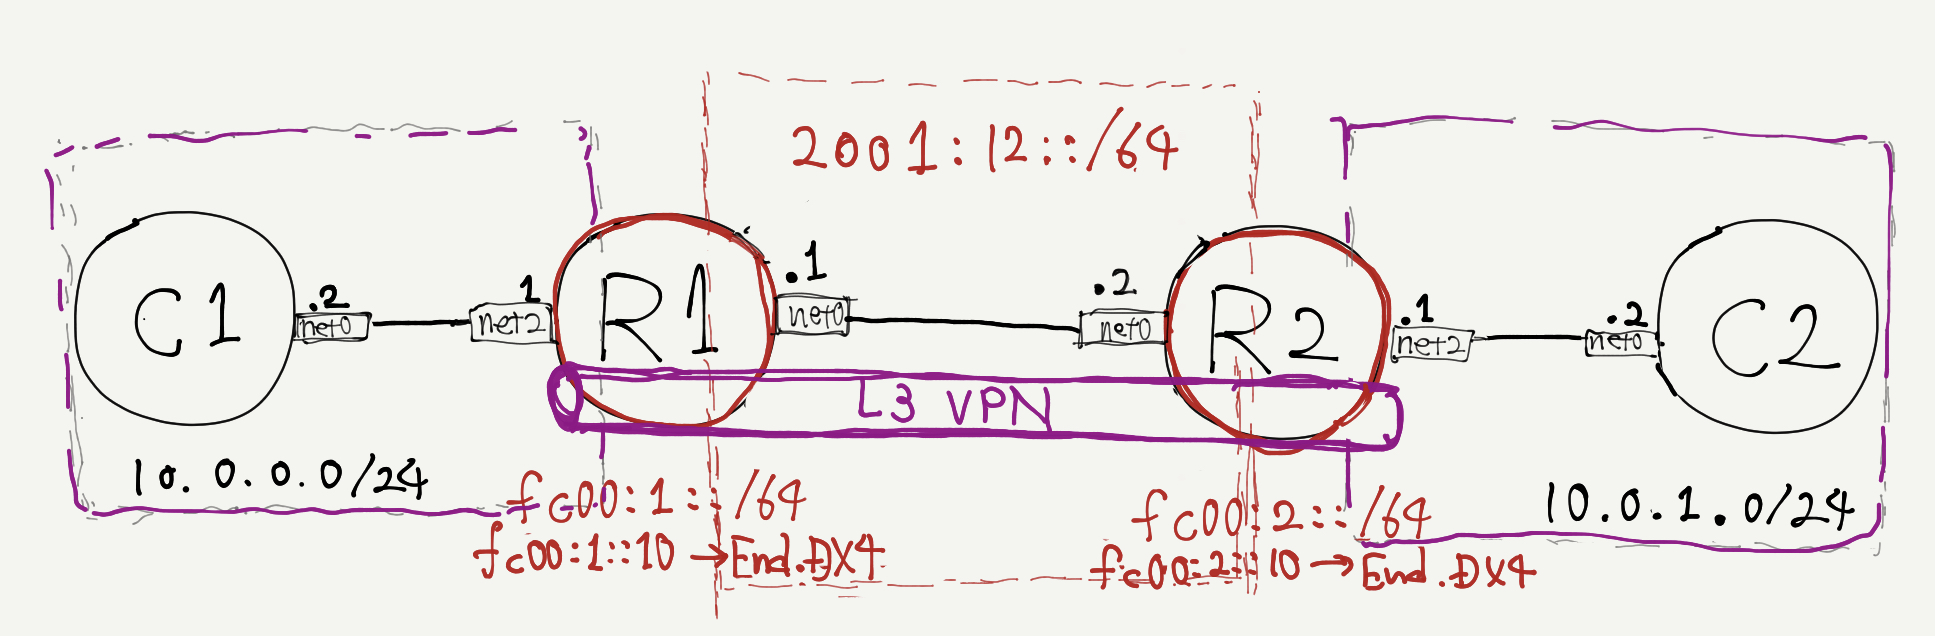 2001:12::/64
C1
.2
net0
1
net2
R1
.1
net0
.2
net0
R2
.1
net2
.2
net0
C2
L3 VPN
10.0.0.0/24
fc00:1::/64
fc00:1::10 → End.DX4
fc00:2::/64
fc00:2::10 → End.DX4
10.0.1.0/24